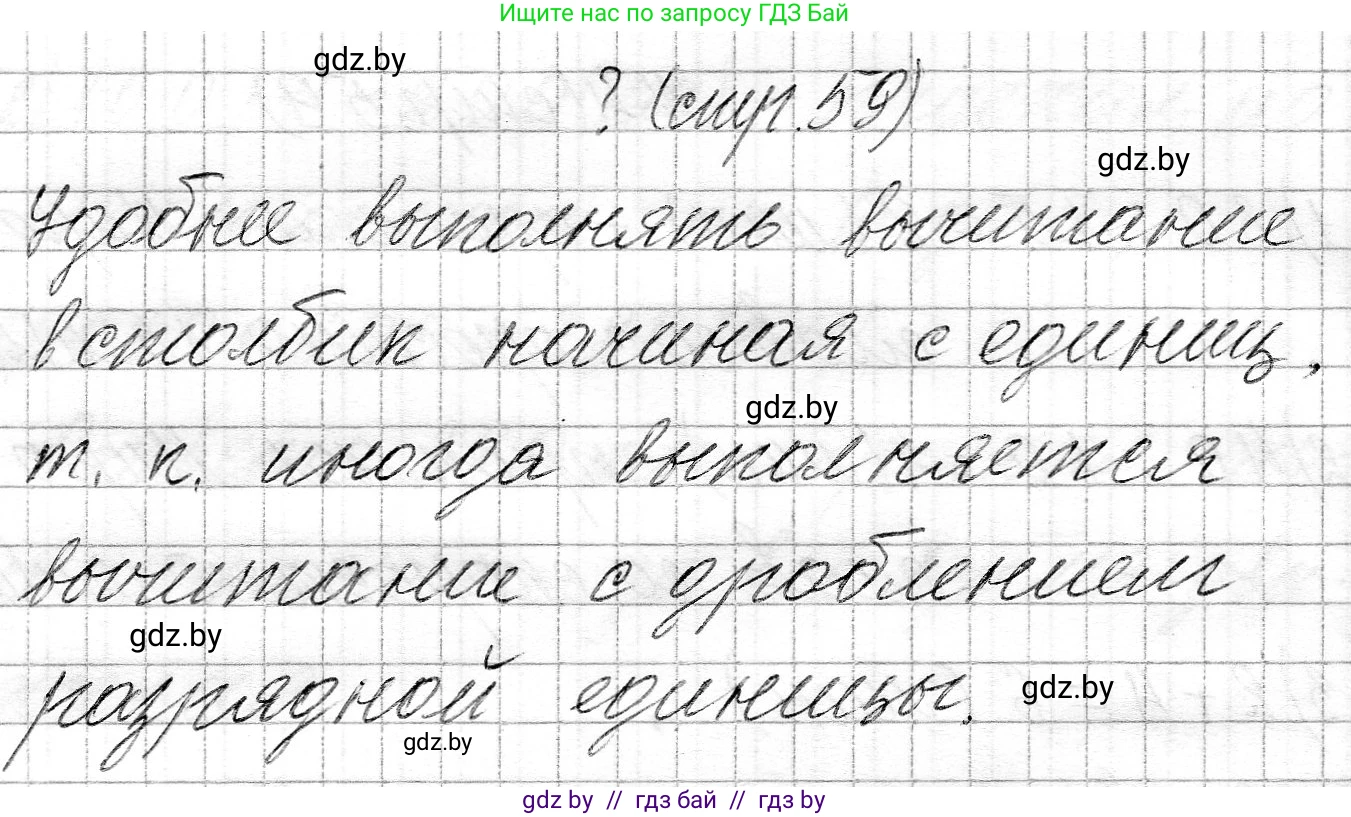 Ищите нас по запросу ГДЗ Бай
gdz.by
? (стр. 59)
gdz.by
Удобнее выполнять вычитание
в столбик начиная с единиц,
gdz.by
т. к. иногда выполняется
вычитание с дроблением
gdz.by
разрядной единицы.
gdz.by
gdz.by
gdz by // гдз бай // гдз by